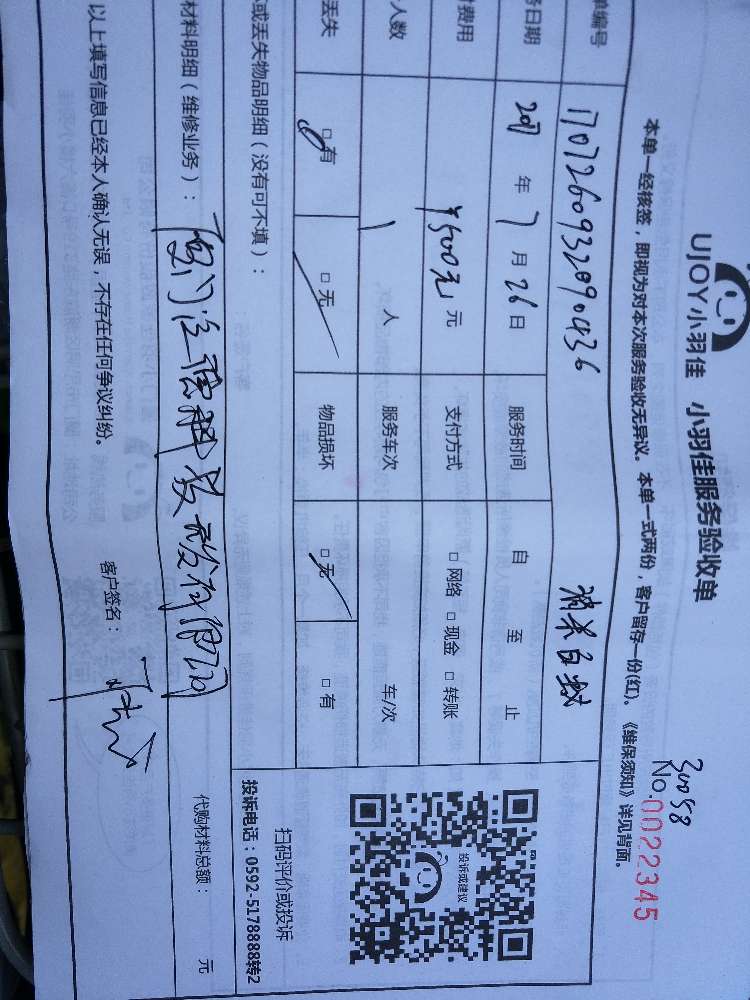 UJOY小羽佳 小羽佳服务验收单
30058
No.0022345
本单一经核签，即视为对本次服务验收无异议。本单一式两份，客户留存一份(红)。《维保须知》详见背面。
单编号 消杀白蚁
务日期 2017 年 7 月 26 日 服务时间 自 至 止
费用 ¥500元 元 支付方式 □网络 □现金 □转账
人数 1 人 服务车次 车/次
丢失 □有 □无 物品损坏 □无 □有
或丢失物品明细（没有可不填）：
投诉或建议
扫码评价或投诉
投诉电话：0592-5178888转2
材料明细（维修业务）： 有限公司 代购材料总额： 元
以上填写信息已经本人确认无误，不存在任何争议纠纷。 客户签名：